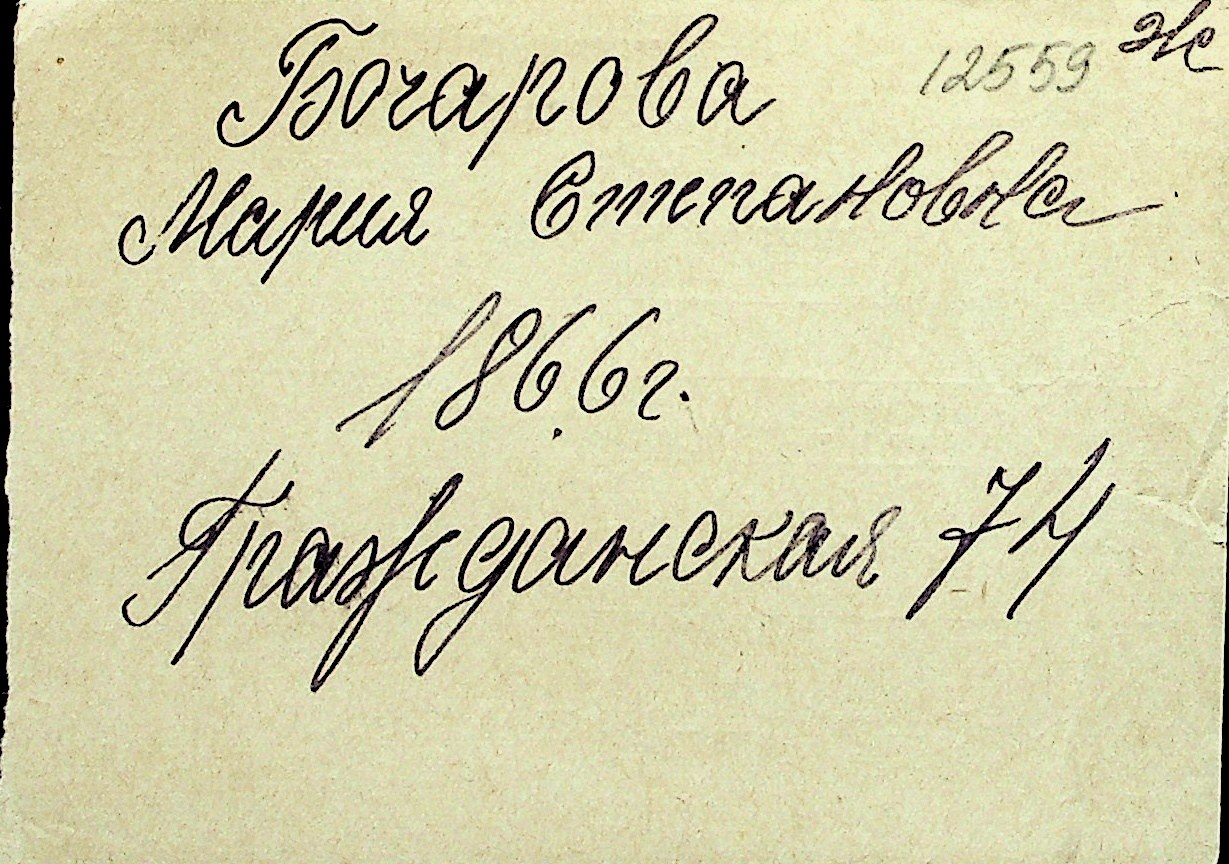 12559 ж
Бочарова
Мария Степановна
1866г.
Гражданская 74